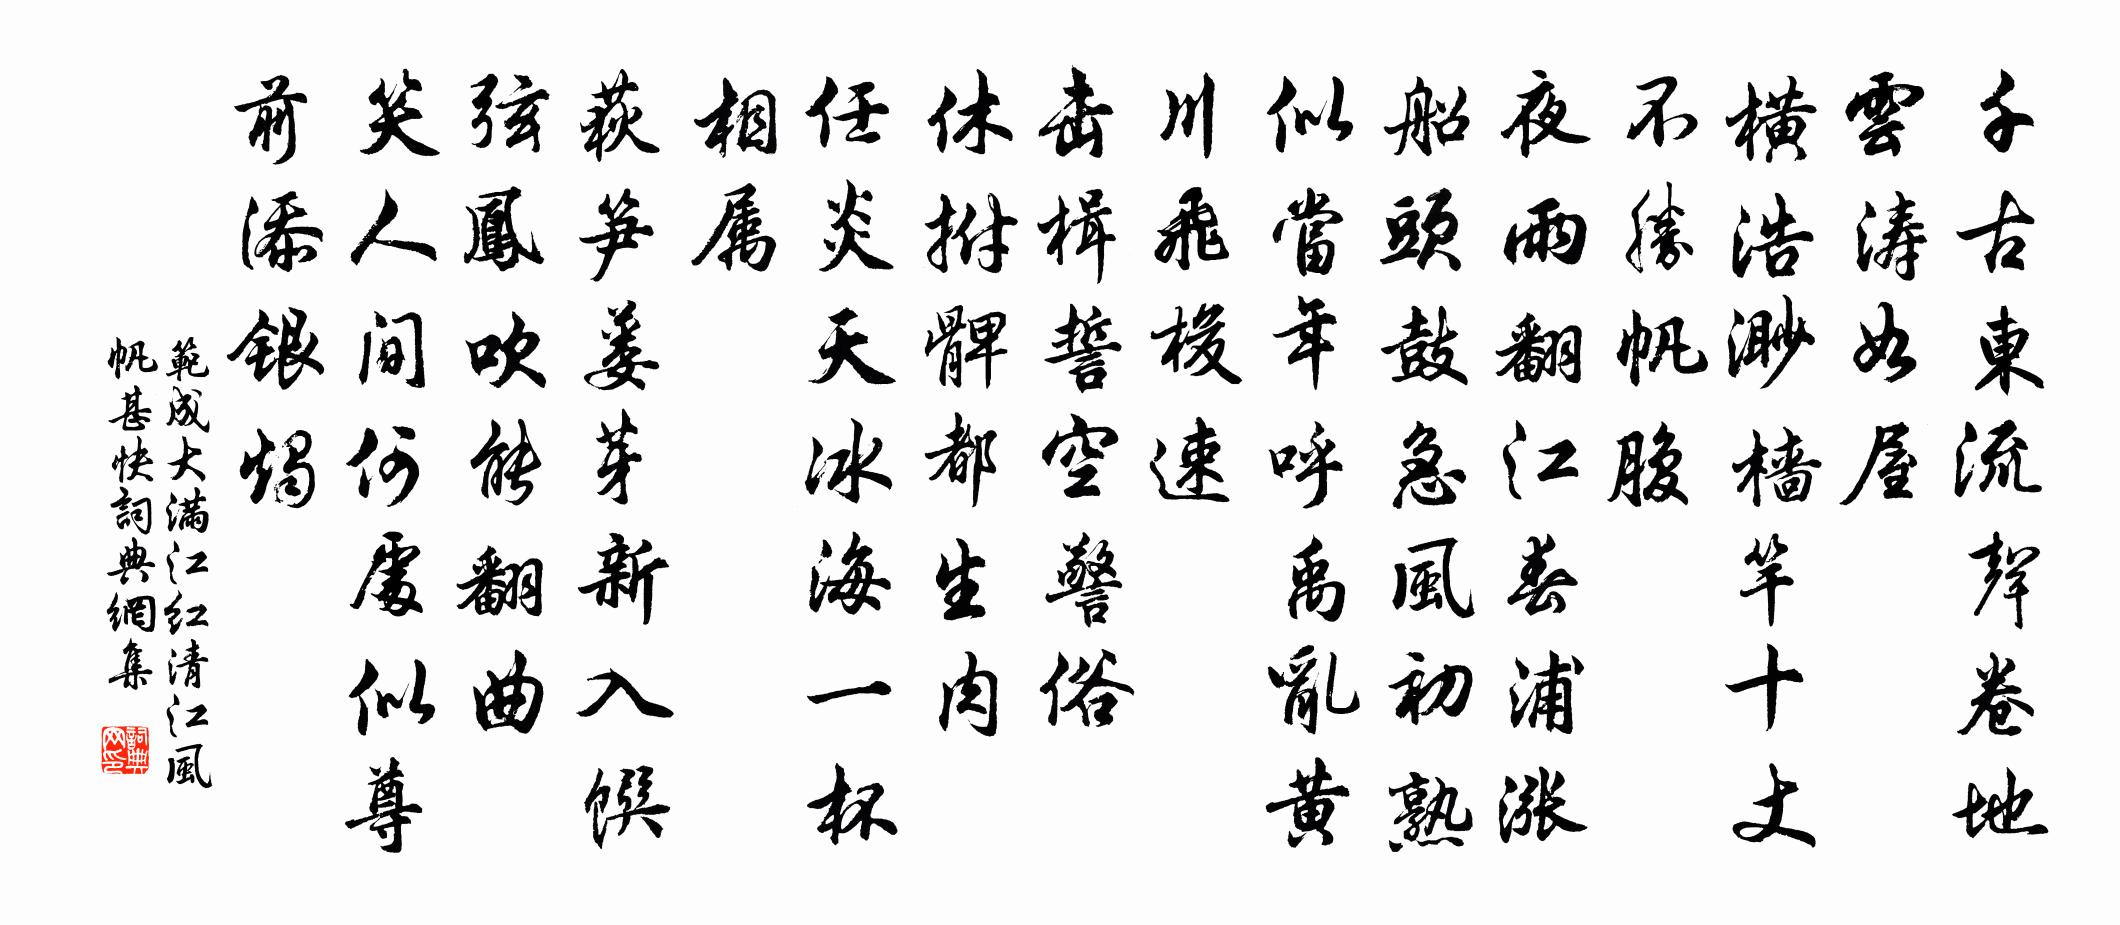 千古東流聲卷地
雲涛如屋
橫浩渺樯竿十丈
不勝帆腹
夜雨翻江春浦漲
船頭鼓急風初熟
似當年呼禹亂黃
川飛梭速
击楫誓空警俗
休拊髀都生肉
任炎天冰海一杯
相属
荻笋蒌芽新入馔
弦鳳吹能翻曲
笑人間何處似尊
前添銀燭
範成大满江红清江風
帆甚快詞典網集
詞典网印